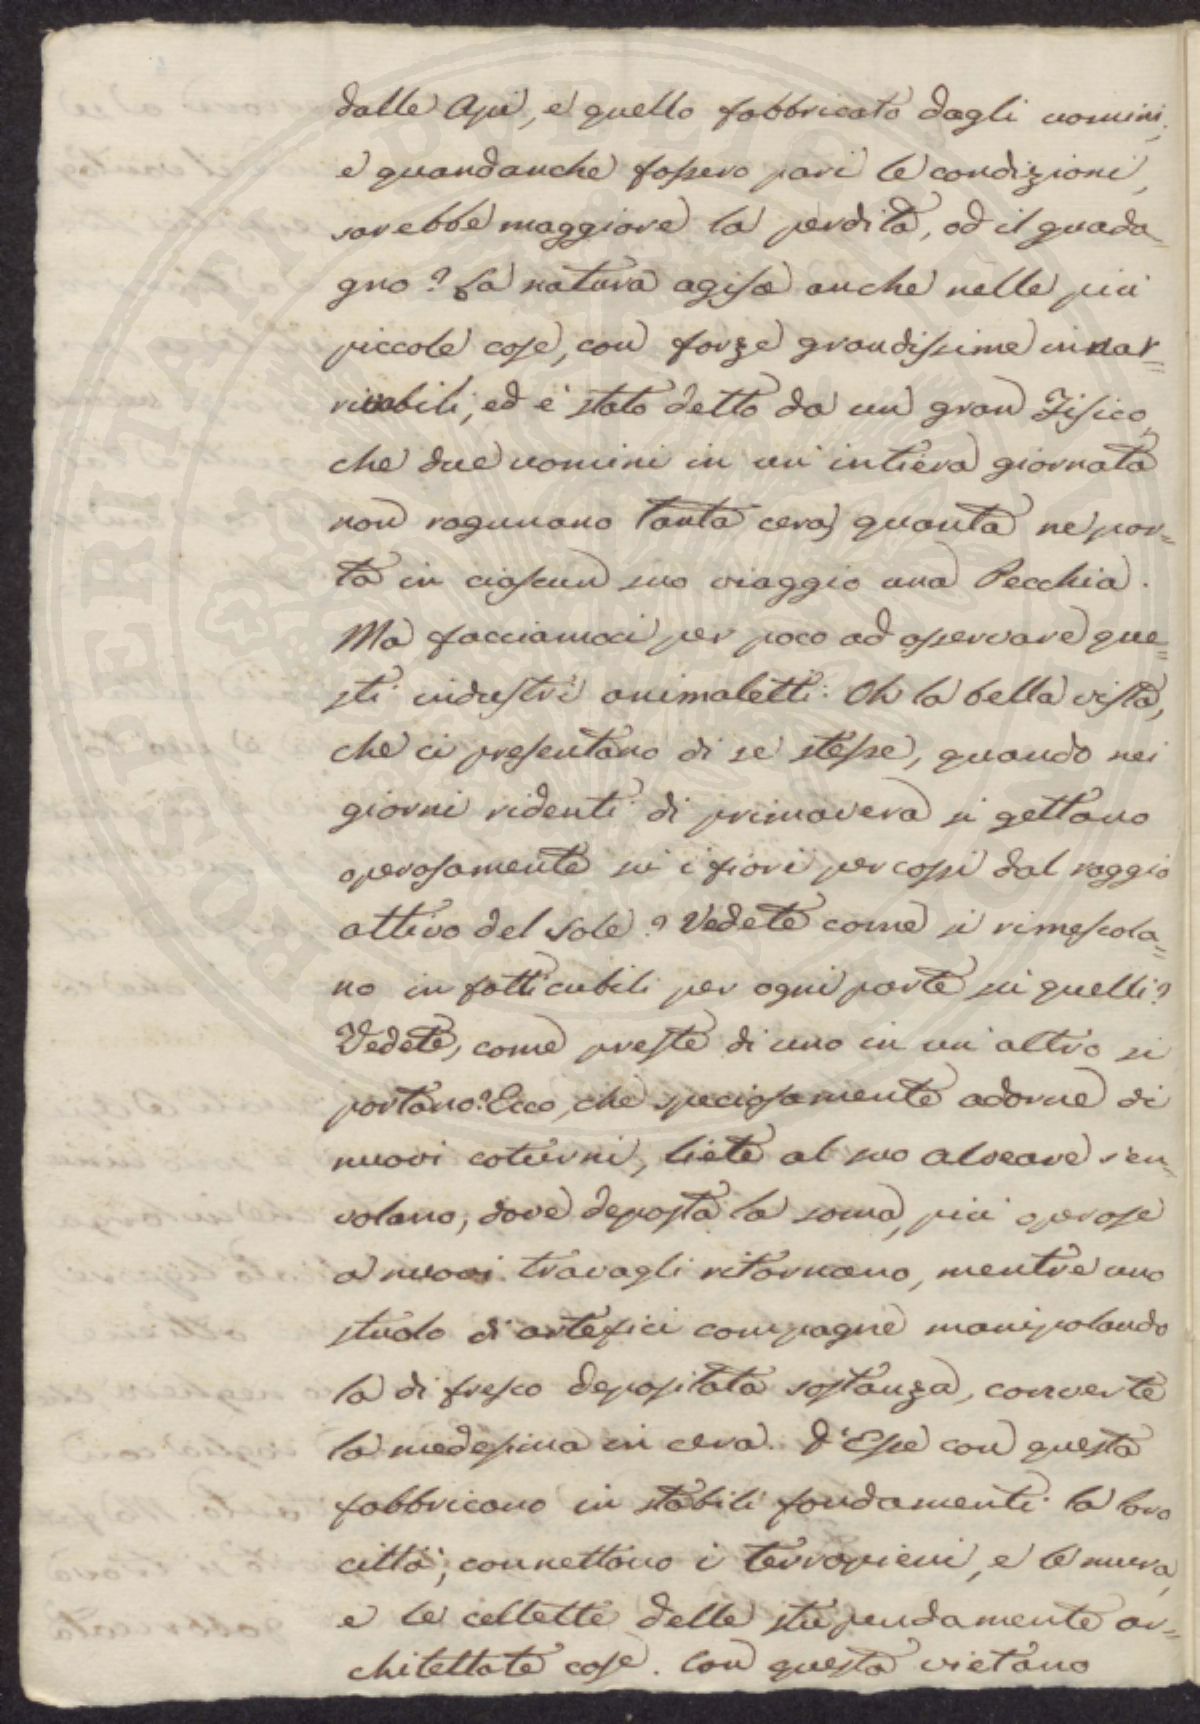 dalle Api, e quello fabbricato dagli uomini;
e quandanche fossero pari le condizioni,
sarebbe maggiore la perdita, od il guada-
gno? La natura agisce anche nelle più
piccole cose, con forze grandissime innar-
ribili, ed è stato detto da un gran Fisico,
che due uomini in un' intiera giornata
non ragunano tanta cera, quanta ne por=
ta in ciascun suo viaggio una Pecchia.
Ma facciamoci per poco ad osservare que=
sti industri animaletti: Oh la bella vista,
che ci presentano di se stesse, quando nei
giorni ridenti di primavera si gettano
operosamente su i fiori percossi dal raggio
attivo del sole? Vedete come si rimescola=
no infatticabili per ogni parte su quelli?
Vedete, come preste di uno in un altro si
portano? Ecco, che speciosamente adorne di
nuovi coturni, liete al suo alveare s'en
volano, dove deposta la soma, più operose
a nuovi travagli ritornano, mentre uno
stuolo di artefici compagne manipolando
la di fresco depositata sostanza, converte
la medesima in cera. D'Esse con questa
fabbricano in stabili fondamenti la loro
città; connettono i terrapieni, e le mura,
e le cellette delle stupendamente ar=
chitettate case. Con questa vietano
PROSPERITATI PUBLICAE